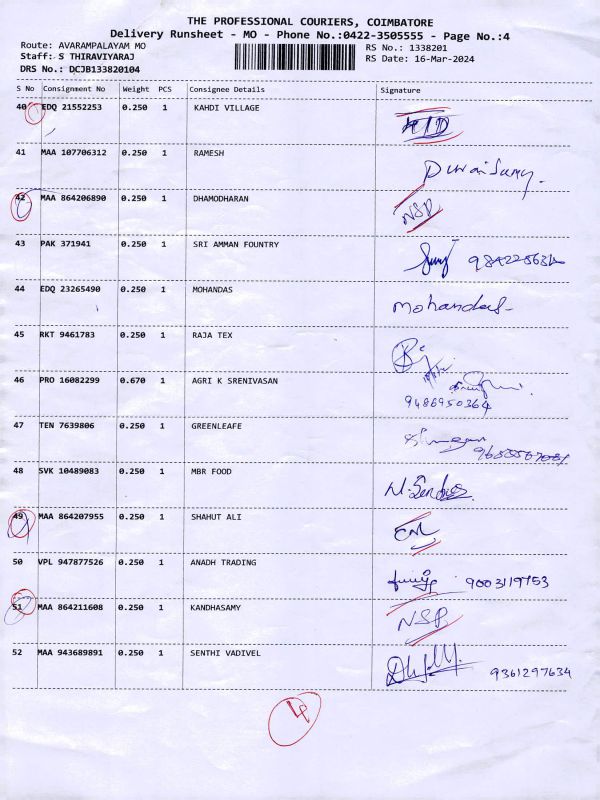 THE PROFESSIONAL COURIERS, COIMBATORE
Delivery Runsheet - MO - Phone No.:0422-3505555 - Page No.:4
Route: AVARAMPALAYAM MO RS No.: 1338201
Staff: S THIRAVIYARAJ RS Date: 16-Mar-2024
DRS No.: DCJB133820104
S No Consignment No Weight PCS Consignee Details Signature
40 EDQ 21552253 0.250 1 KAHDI VILLAGE
41 MAA 107706312 0.250 1 RAMESH Duraisamy.
42 MAA 864206890 0.250 1 DHAMODHARAN NSP
43 PAK 371941 0.250 1 SRI AMMAN FOUNTRY
44 EDQ 23265490 0.250 1 MOHANDAS Mohandas
45 RKT 9461783 0.250 1 RAJA TEX
46 PRO 16082299 0.670 1 AGRI K SRENIVASAN
9486950364
47 TEN 7639806 0.250 1 GREENLEAFE
48 SVK 10489083 0.250 1 MBR FOOD
49 MAA 864207955 0.250 1 SHAHUT ALI
50 VPL 947877526 0.250 1 ANADH TRADING 9003119753
51 MAA 864211608 0.250 1 KANDHASAMY NSP
52 MAA 943689891 0.250 1 SENTHI VADIVEL 9361297634
4